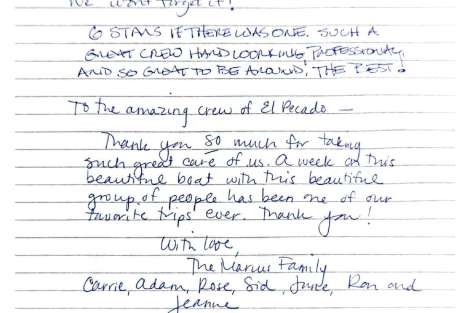 We won't forget it!
6 STARS IF THERE WAS ONE. SUCH A
GREAT CREW HARD WORKING, PROFESSIONAL,
AND SO GREAT TO BE AROUND, THE BEST!
To the amazing crew of El Pecado —
Thank you so much for taking
such great care of us. A week on this
beautiful boat with this beautiful
group of people has been one of our
favorite trips ever. Thank you!
With love,
The Marcus Family
Carrie, Adam, Rose, Sid, June, Ron and
Jeanne